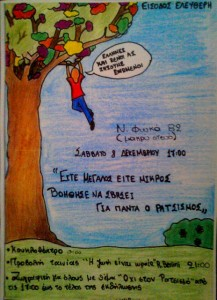 ΕΙΣΟΔΟΣ ΕΛΕΥΘΕΡΗ
ΕΛΛΗΝΕΣ
ΚΑΙ ΞΕΝΟΙ ΑΣ
ΖΗΣΟΥΜΕ
ΕΝΩΜΕΝΟΙ
Ν. Φωκα 82
ΣΑΒΒΑΤΟ 8 ΔΕΚΕΜΒΡΙΟΥ 17:00
"ΕΙΤΕ ΜΕΓΑΛΟΣ ΕΙΤΕ ΜΙΚΡΟΣ
ΒΟΗΘΗΣΕ ΝΑ ΣΒΗΣΕΙ
ΓΙΑ ΠΑΝΤΑ Ο ΡΑΤΣΙΣΜΟΣ"
• Κουκλοθέατρο
• Προβολή ταινίας "Η ζωή είναι ωραία"
• Ζωγραφική με θέμα "Όχι στον Ρατσισμό" από
τις 17:00 έως το τέλος της εκδήλωσης